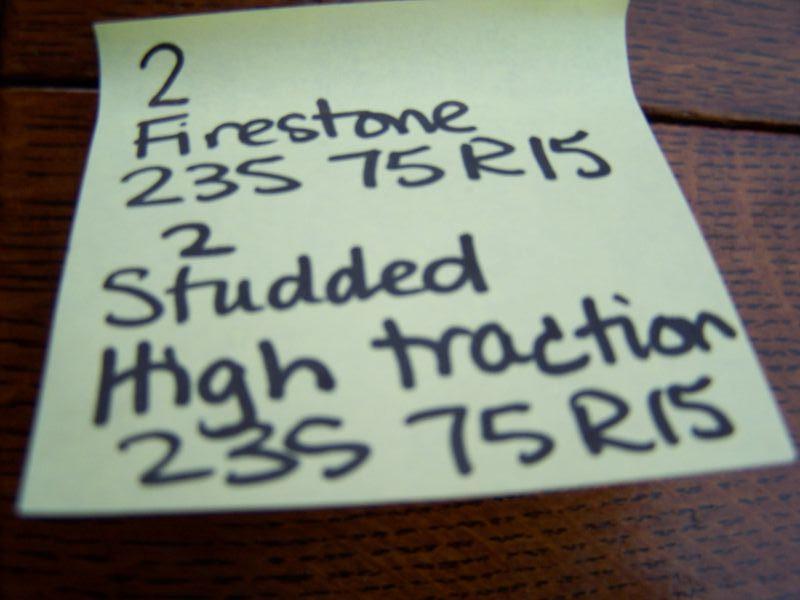 2
Firestone
235 75 R15
2
Studded
High traction
235 75 R15